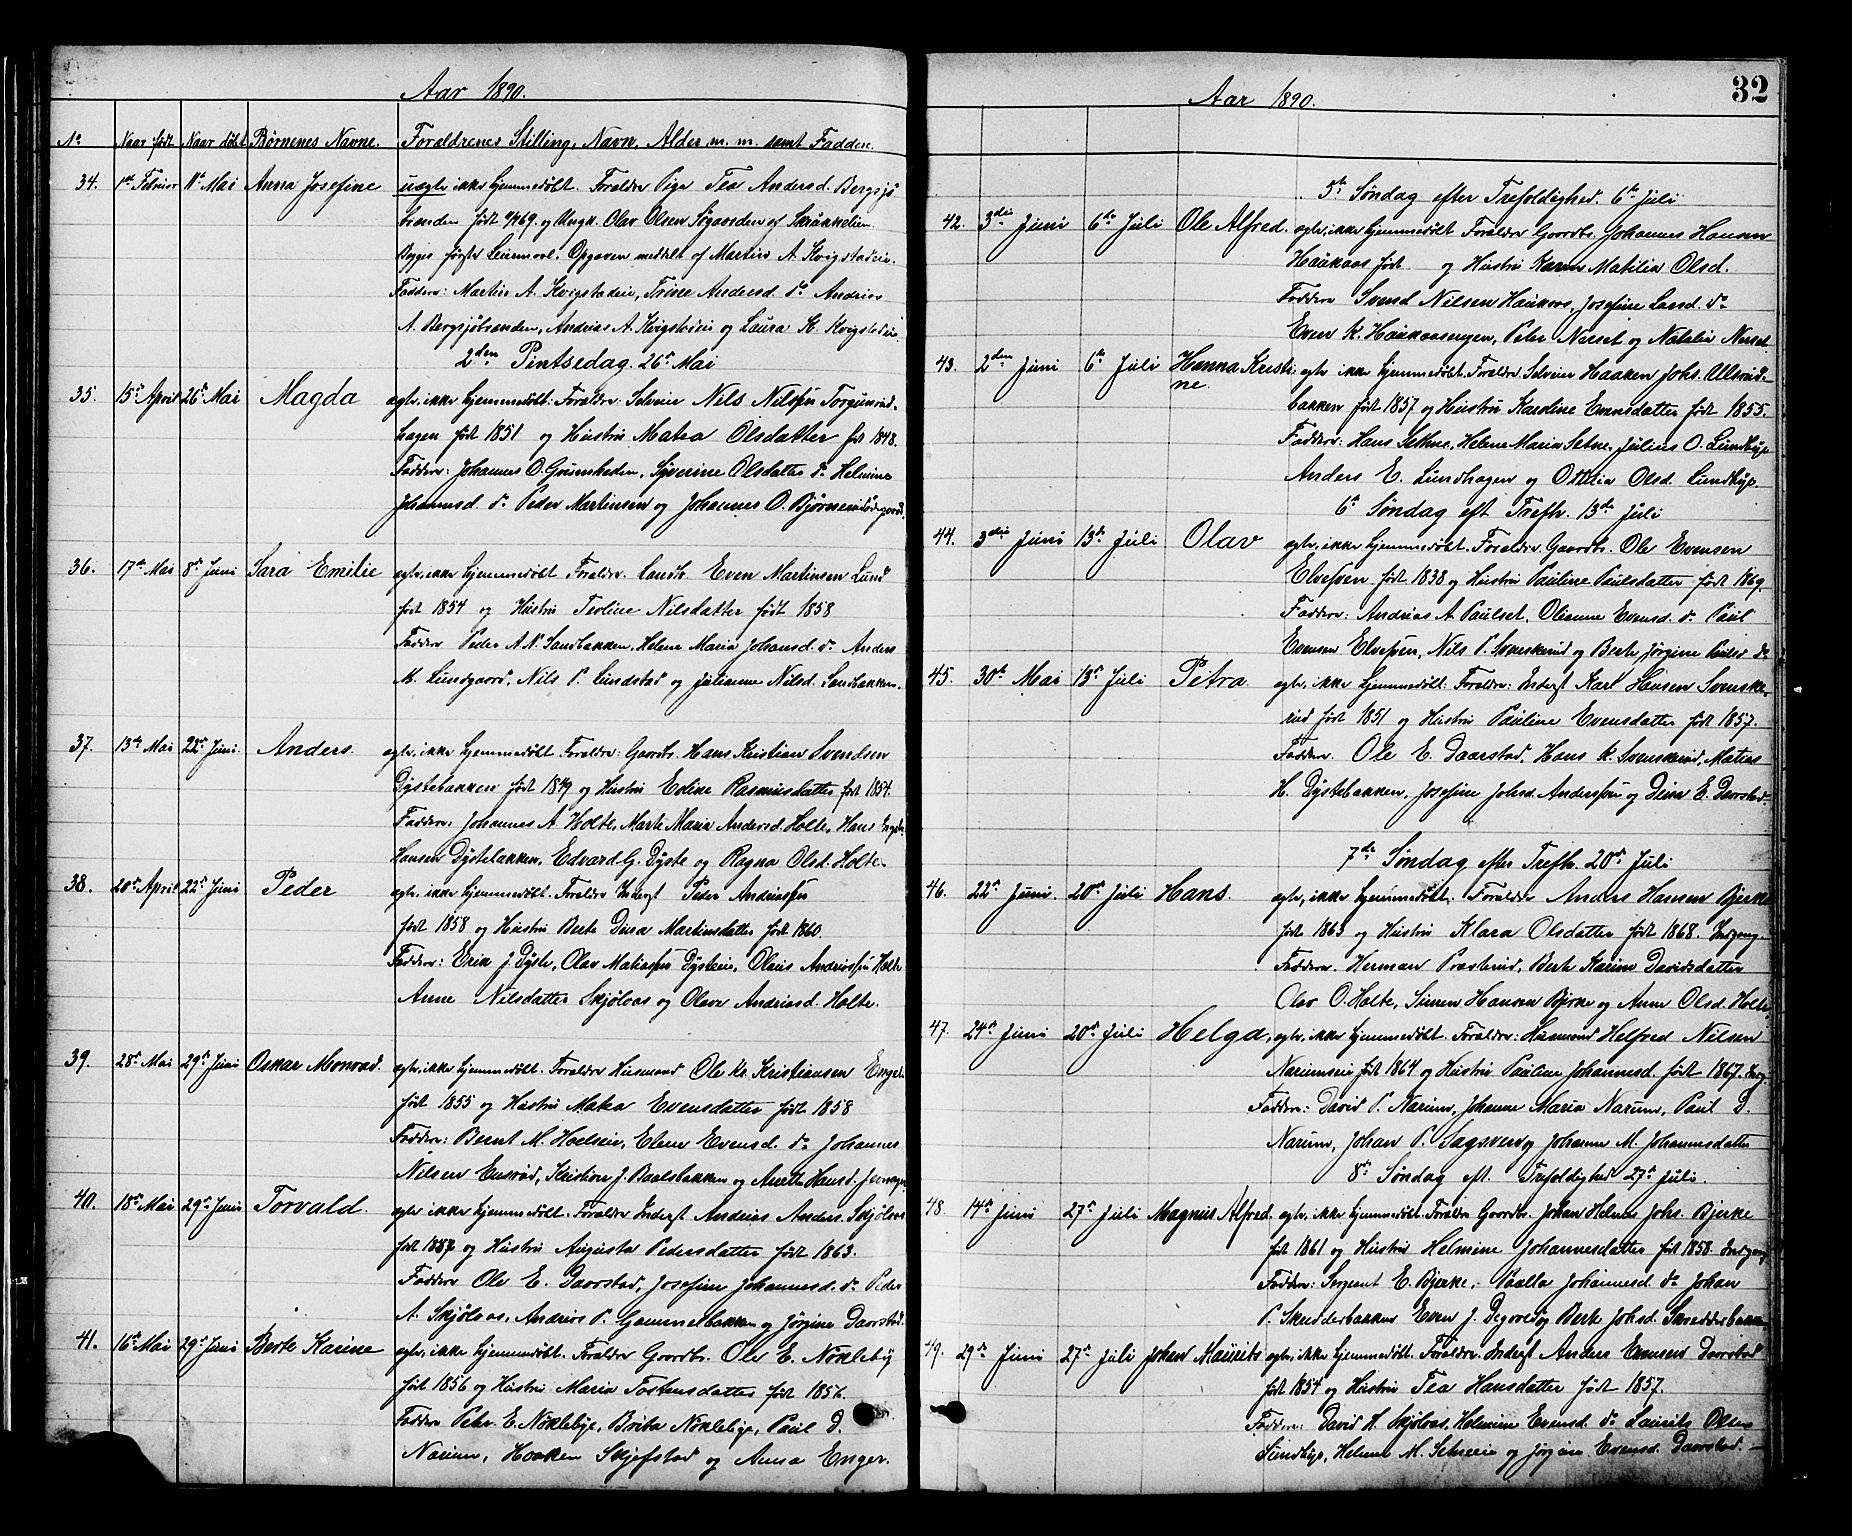 Aar 1890.
No Naar født Naar døbt Børnenes Navne. Forældrenes Stilling, Navn, Alder m. m. samt Faddere.
34. 1ste Februar 11te Mai Anna Josefine uægte ikke hjemmedøbt. Forældre Pige Tea Andersd. Bergsjø
branden født 4/4 69. og Ungk. Olav Olsen Søgaarden af Skrukkelien.
Begges første Leiermaal. Opgaven meddelt af Martin A. Kvigstadeie.
Faddere: Martin A. Kvigstadeie, Trine Andersd. do Andreas
A. Bergsjøbranden, Andreas A. Kvigstadeie og Laura K. Kvigstadeie.
2den Pintsedag. 26de Mai
35. 15de April 26de Mai Magda ægte, ikke hjemmedøbt: Forældre: Selveier Nils Nilsen Torgunrud-
hagen født 1851 og Hustru Matea Olsdatter født 1848.
Faddere: Johannes O. Grimsheden, Syverine Olsdatter do Helmine
Johannesd. do Peder Martinsen og Johannes O. Bjørnerudsgaard.
36. 17de Mai 8de Juni Sara Emilie ægte, ikke hjemmedøbt Forældre. Landh. Even Martinsen Lund
født 1854 og Hustru Teoline Nilsdatter født 1858
Faddere Peder A. N. Sandbakken, Helene Maria Johansd. do Anders
M. Lundgaard, Nils P. Lundstad og Julianne Nilsd. Sandbakken.
37. 13de Mai 22de Juni. Anders. ægte, ikke hjemmedøbt. Forældre: Gaardbr. Hans Kristian Svendsen
Dystebakken født 1849 og Hustru Edine Rasmusdatter født 1854.
Faddere: Johannes A. Holte, Marte Maria Andersd. Holte, Hans Ingebr.
Hansen Dystebakken, Edvard G. Dyste og Ragna Olsd. Holte.
38. 20de April 22de Juni Peder ægte, ikke hjemmedøbt. Forældre Inderst Peder Andreassen
født 1858 og Hustru Berte Dina Martinsdatter født 1860.
Faddere: Erik J. Dyste, Olav Matiassen Dysteeie, Olaus Andreassen Holte
Anne Nilsdatter Skjølaas og Olava Andreasd. Holte.
39. 28de Mai 29de Juni Oskar Monrad. ægte, ikke hjemmedøbt. Forældre Husmand Ole Kr. Kristiansen Enger
født 1855 og Hustru Matea Evensdatter født 1858
Faddere: Bernt M. Hoelseie, Elene Evensd. do Johannes
Nilsen Ensrud, Kristian J. Baalsbakken og Anette Hansd.
40. 18de Mai 29de Juni Torvald. ægte ikke hjemmedøbt. Forældre Inderst Andreas Anders. Skjølaas
født 1857 og Hustru Augusta Pedersdatter født 1863.
Faddere Ole E. Daarstad, Josefine Johannesd. do Peder
A. Skjølaas, Andreas P. Gammelbakken og Jørgine Daarstad.
41. 16de Mai 29de Juni Berte Karine ægte, ikke hjemmedøbt. Forældre Gaardbr. Ole E. Nøkleby
født 1856 og Hustru Maria Tostensdatter født 1856.
Faddere Peder E. Nøklebye, Brita Nøklebye, Paul D.
Narum, Haaken Skjefstad og Anna Enger.
Aar 1890. 32
5te Søndag efter Trefoldighed. 6te Juli
42. 3die Juni 6te Juli Ole Alfred. ægte, ikke hjemmedøbt Forældre Gaardbr. Johannes Hansen
Haukaas født og Hustru Karen Matilia Olsd.
Faddere Svend Nilsen Haukaas, Josefine Larsd. do
Even K. Haukaasengen, Peter Nerset og Natalie Nerset.
43. 2den Juni 6te Juli Hanna Kristi- ægte ikke hjemmedøbt. Forældre Selveier Haaken Johs. Ullsrud-
ne.
bakken født 1857 og Hustru Karoline Evensdatter født 1855.
Faddere: Hans Sethne, Helene Maria Setne, Julius O. Lundbye
Anders E. Lundhagen og Ottilia Olsd. Lundbye.
6te Søndag eft Trefh. 13de Juli
44. 3die Juni 13de Juli Olav ægte, ikke hjemmedøbt. Forældre Gaardbr. Ole Evensen
Elvesven født 1838 og Hustru Pauline Paulsdatter født 1869.
Faddere: Andreas A. Paulset, Olianne Evensd. do Paul
Evensen Elvesven, Nils P. Svenskerud og Berte Jørgine Paulsd do
45. 30te Mai 13de Juli Petra. ægte, ikke hjemmedøbt. Forældre: Inderst Karl Hansen Svenske-
rud født 1851 og Hustru Pauline Evensdatter født 1857.
Faddere. Ole E. Daarstad, Hans K. Svenskerud, Matias
H. Dystebakken, Josefine Johsd. Anderssen og Dina E. Daarstad.
7de Søndag efter Trefh. 20de Juli
46. 22de Juni. 20de Juli Hans. ægte, ikke hjemmedøbt. Forældre Anders Hansen Bjerke
født 1863 og Hustru Klara Olsdatter født 1868. Indgang
Faddere. Herman Præsterud, Berte Karine Davidsdatter
Olav O. Holte, Simen Hansen Bjerke og Anne Olsd. Holte.
47. 24de Juni 20de Juli Helga, ægte, ikke hjemmedøbt. Forældre: Husmand Helfred Nilsen
Narumseie født 1864 og Hustru Pauline Johannesd. født 1867. Indg.
Faddere: David P. Narum, Johanne Maria Narum, Paul D.
Narum, Johan P. Sagsveen og Johanne M. Johannesdatter
8de Søndag ef. Trefoldighed 27de Juli.
48. 14de Juni 27de Juli Magnus Alfred. ægte, ikke hjemmedøbt. Forældre Gaardbr. Johan Helmer Johs. Bjerke
født 1861 og Hustru Helmine Johannesdatter født 1858. Indgang
Faddere: Sergeant E. Bjerke, Paalla Johannesd. do Johan
P. Skredderbakken Even J. Degvold og Berte Johsd. Skredderbakken
49. 29de Juni 27de Juli Johan Maurits ægte, ikke hjemmedøbt. Forældre. Inderst Anders Evensen Daarstad
født 1854 og Hustru Tea Hansdatter født 1857.
Faddere: David H. Skjølaas, Helmine Evensd. do Laurits Olsen
Sundbye, Helene M. og Jørgine Evensd. Daarstad.